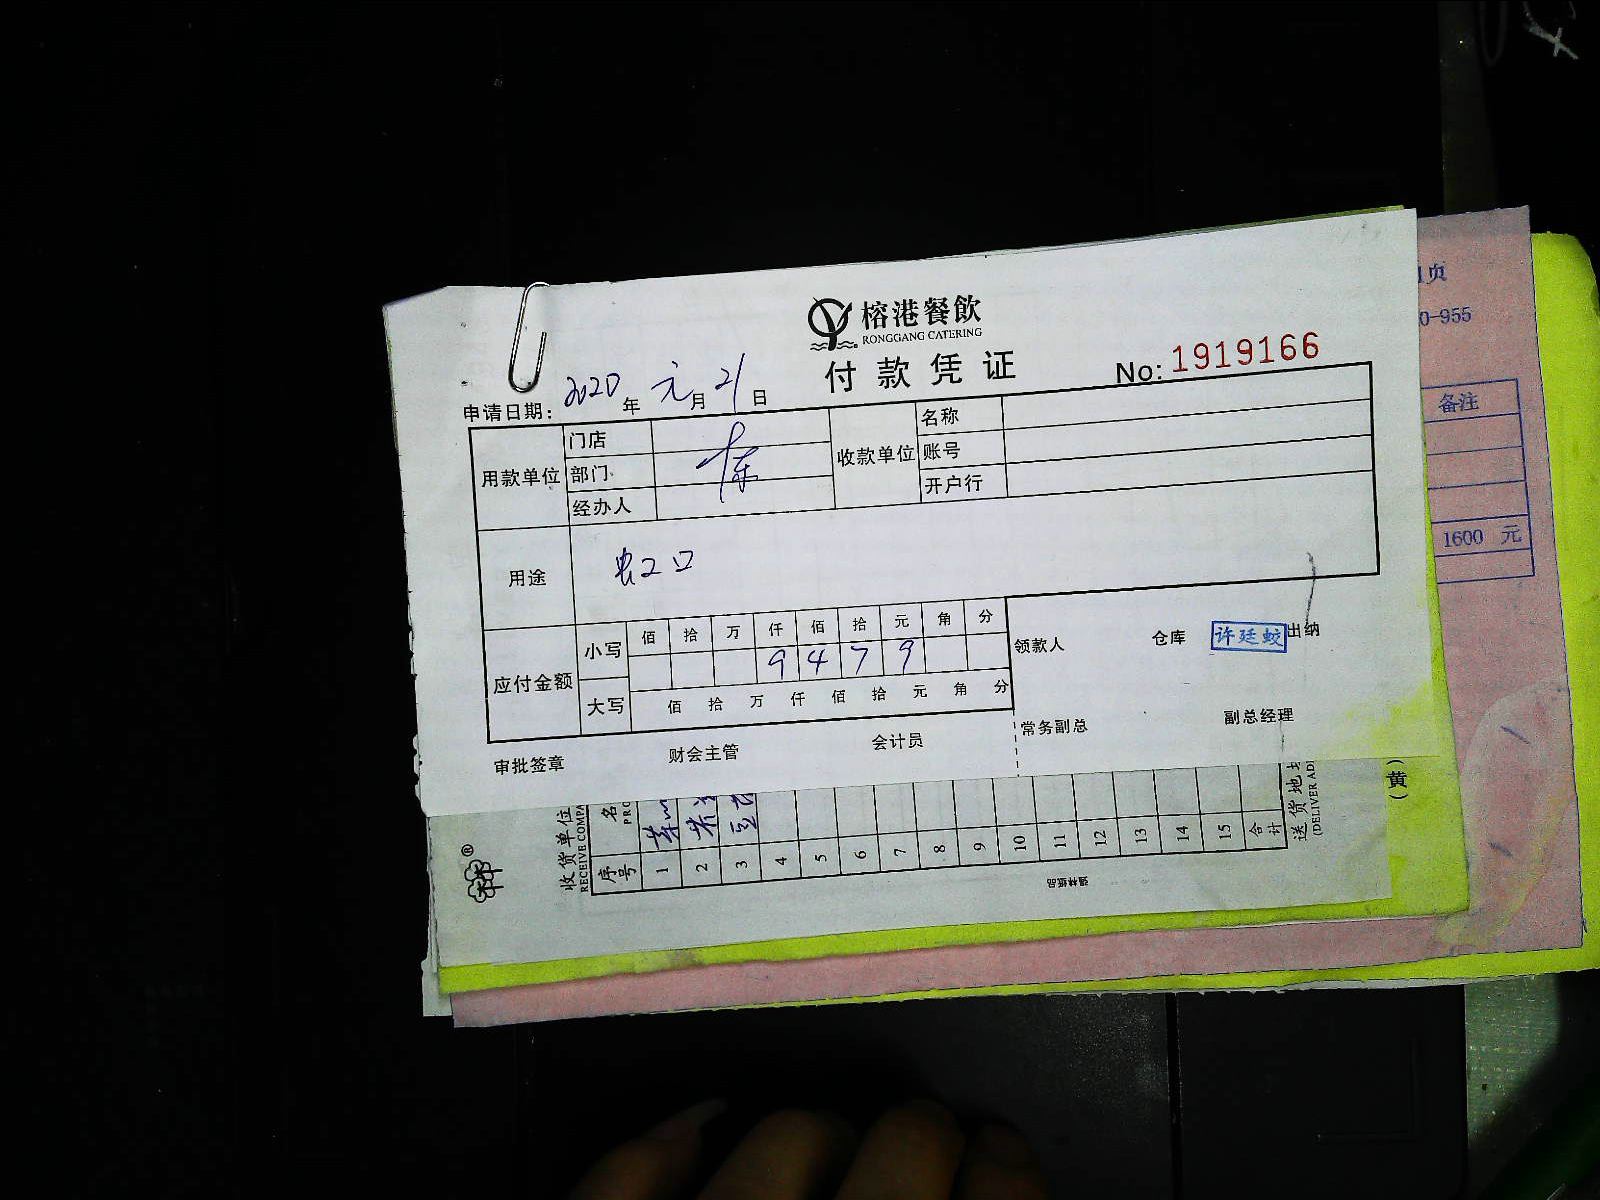 榕港餐飲
RONGGANG CATERING
付款凭证
No: 1919166
申请日期: 2020 年 元 月 21 日
用款单位 门店 收款单位 名称
部门 账号
经办人 开户行
用途 虹口
应付金额 小写 佰 拾 万 仟 佰 拾 元 角 分
9 4 7 9
大写 佰 拾 万 仟 佰 拾 元 角 分
领款人 仓库 许廷蛟 出纳
常务副总 副总经理
审批签章 财会主管 会计员
1页
0-955
备注
1600 元
(黄)
收货单位
RECEIVE COMPA
序号 1 2 3 4 5 6 7 8 9 10 11 12 13 14 15 合计
名
PRO
送货地
(DELIVER AD